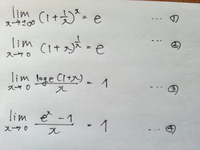 lim x→±∞ (1+1/x)^x = e … ①
lim x→0 (1+x)^(1/x) = e … ②
lim x→0 log e(1+x)/x = 1 … ③
lim x→0 (e^x − 1)/x = 1 … ④